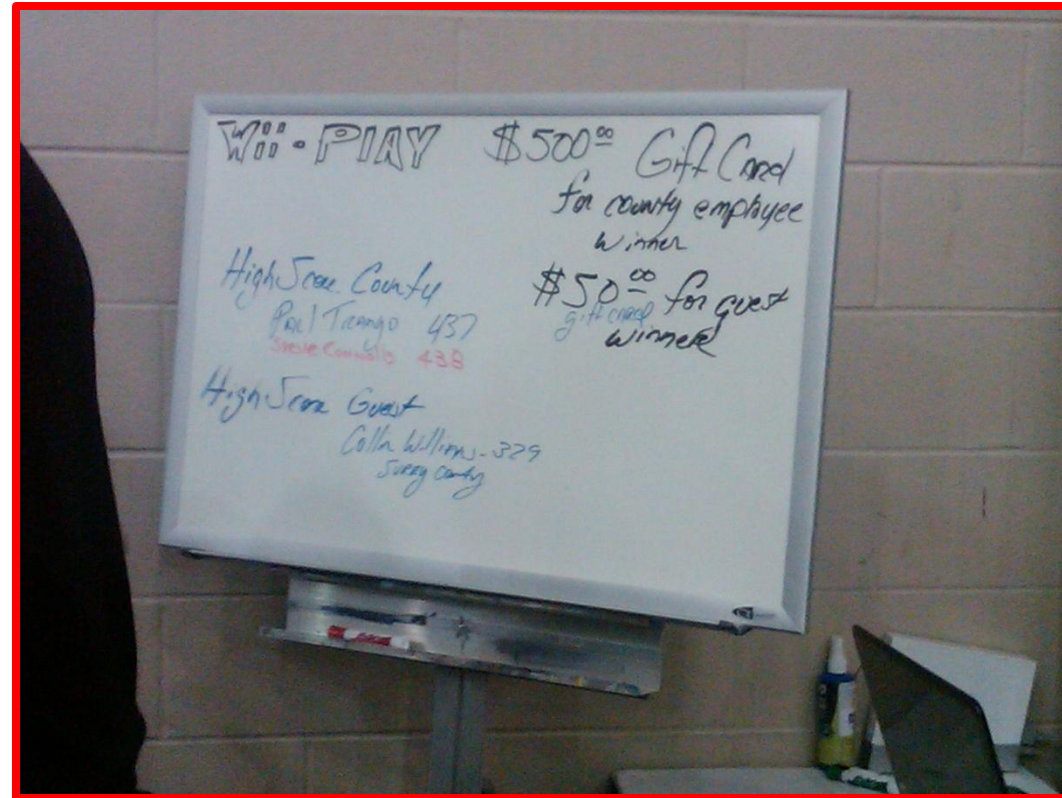 Wii - PlAY
$500.00 Gift Card
for county employee
winner
$50.00 for guest
gift card
winner
High Score County
Paul Trango 437
Steve Connolly 438
High Score Guest
Collin Williams - 329
Surry County